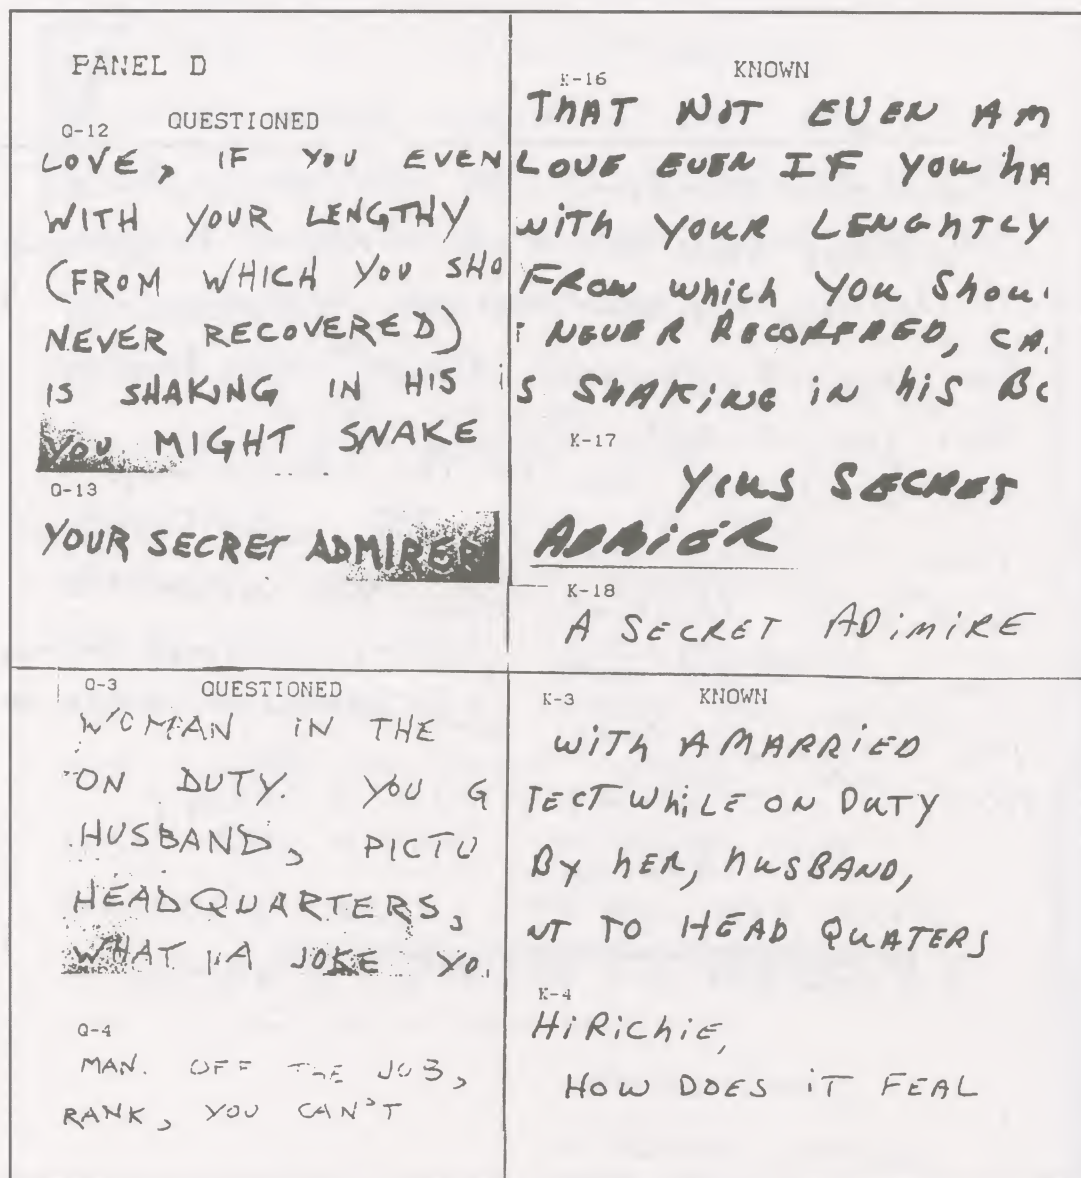 PANEL D
QUESTIONED
Q-12
LOVE, IF YOU EVEN
WITH YOUR LENGTHY
(FROM WHICH YOU SHO
NEVER RECOVERED)
IS SHAKING IN HIS
YOU MIGHT SNAKE
Q-13
YOUR SECRET ADMIRER
KNOWN
K-16
THAT NOT EVEN AM
LOVE EVEN IF YOU hA
WITh YOUR LENGhTLY
FROM which YOU Shou
NEVER RECORERED, CA
S ShAKiNG iN hiS BO
K-17
YOUS SECRET
ADMiER
K-18
A SECRET ADiMiRE
Q-3 QUESTIONED
WOMAN iN THE
ON DUTY. YOU G
HUSBAND, PICTU
HEADQUARTERS,
WHAT A JOKE YO
Q-4
MAN. OFF THE JOB,
RANK, YOU CAN'T
K-3 KNOWN
WiTh A MARRiED
TECT WhiLE ON DUTY
BY hER, hUSBAND,
NT TO HEAD QUATERS
K-4
HiRiChiE,
HOW DOES iT FEAL